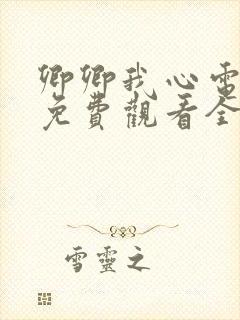 卿卿我心電
免費觀看全
雪靈之